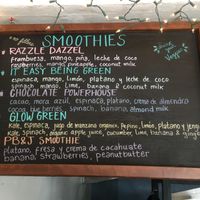 no fillers SMOOTHIES
* RAZZLE DAZZEL
frambuesa, mango, piña, leche de coco
raspberries, mango, pineapple, coconut milk
* IT EASY BEING GREEN
espinaca, mango, limón, plátano y leche de coco
spinach, mango, lime, banana & coconut milk
* CHOCOLATE POWERHOUSE
cacao, mora azul, espinaca, plátano, crema de almendra
cocoa, blueberries, spinach, banana, almond milk
GLOW GREEN
Kale, espinaca, jugo de manzana organico, Pepino, limón, platano y jengibre
Kale, spinach, organic apple juice, cucumber, lime, banana & ginger
PB&J SMOOTHIE
platano, fresa y crema de cacahuate
banana, strawberries, peanut butter